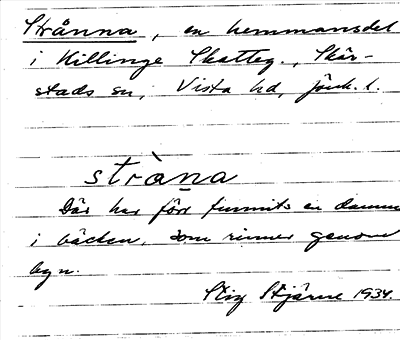 Strånna, en hemmansdel
i Killinge Skatteg., Skär-
stads sn, Vista hd, Jönk. l.
stràna
Där har förr funnits en damm
i bäcken, som rinner genom
byn.
Stig Stjärne 1934.